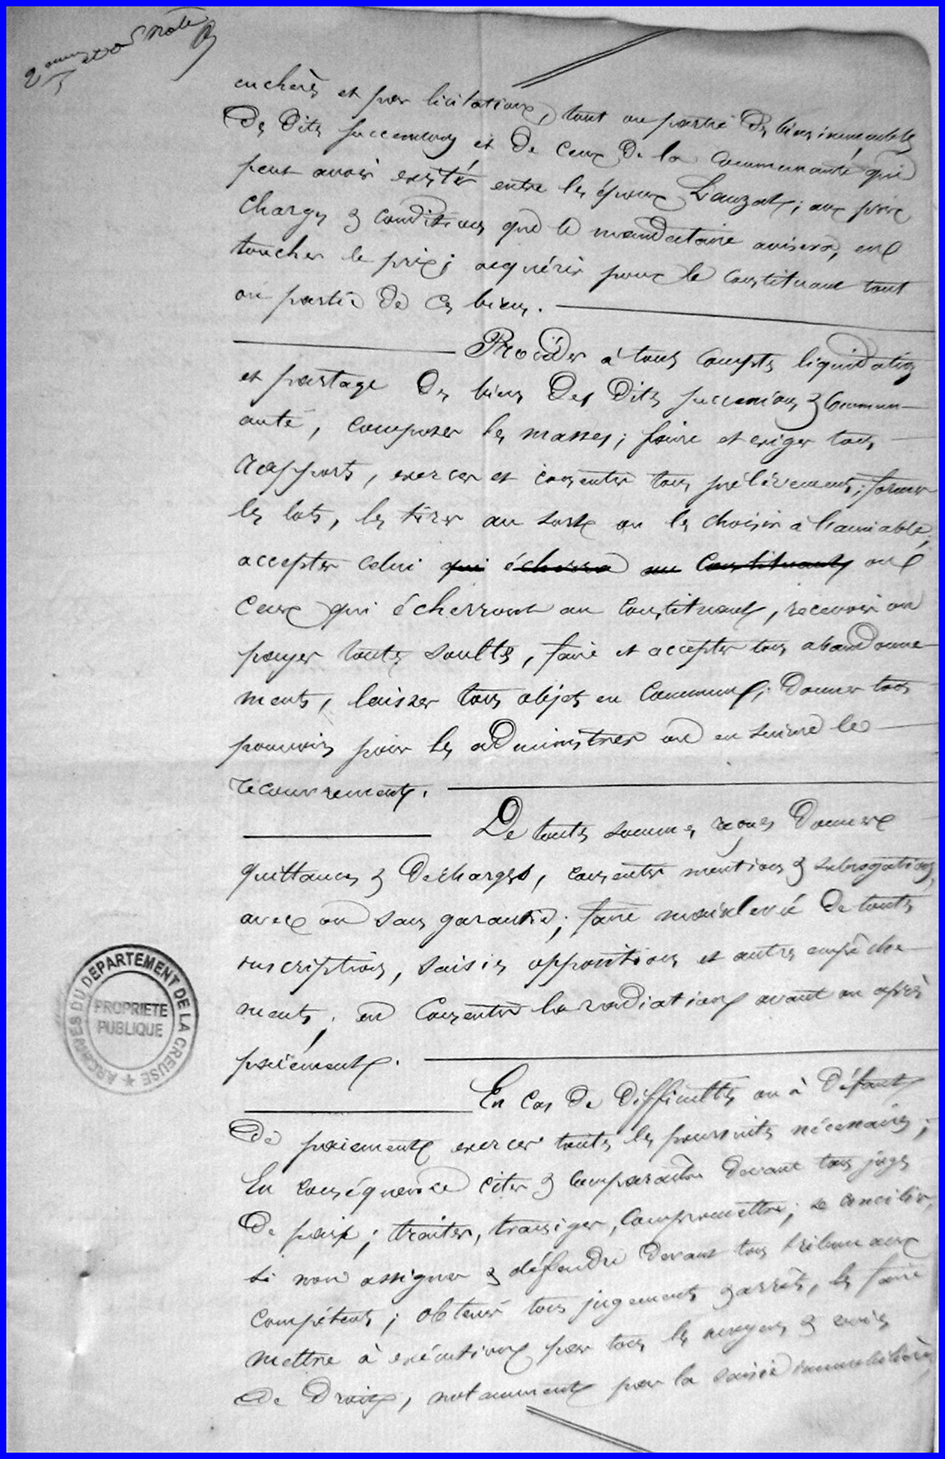 enchères et par licitation, tout ou partie des biens immeubles
des dites successions et de ceux de la Communauté qui
peut avoir existé entre les époux Lauzat; aux prix
charges & conditions que le mandataire avisera, en
toucher le prix; acquérir pour le Constituant tout
ou partie de ces biens.
Procéder à tous Compte liquidation
et partage des biens des dites successions & Commun-
auté, composer les masses; faire et exiger tous
rapports, exercer et consentir tous prélèvements; former
les lots, les tirer au sort ou les choisir à l'amiable,
accepter celui qui écherra au Constituant ou
ceux qui écherront au Constituant, recevoir ou
payer toutes soultes, faire et accepter tous abandonne
ments, laisser tous objets en Commun; donner tous
pouvoirs pour les administrer ou en suivre le
recouvrement.
De toutes sommes reçues donner
quittances & décharges, consentir mentions & subrogations
avec ou sans garantie; faire mainlevée de toutes
inscriptions, saisies oppositions et autres empêche
ments, en Consentir la radiation avant ou après
paiement.
En cas de difficultés ou à défaut
de paiement exercer toutes les poursuites nécessaires;
En conséquence citer & comparaître devant tous juges
de paix; traiter, transiger, compromettre; se concilier,
si non assigner & défendre devant tous tribunaux
compétents; obtenir tous jugements & arrêts, les faire
mettre à exécution par tous les moyens & voies
de droit, notamment par la saisie immobilière
ARCHIVES DU DÉPARTEMENT DE LA CREUSE
PROPRIETE
PUBLIQUE